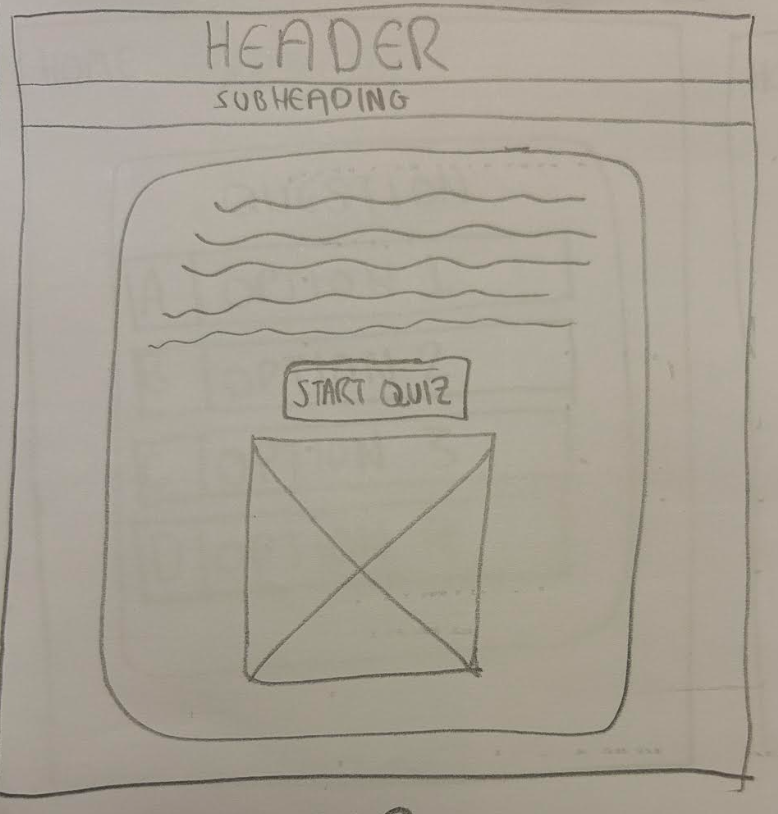 HEADER
SUBHEADING
START QUIZ